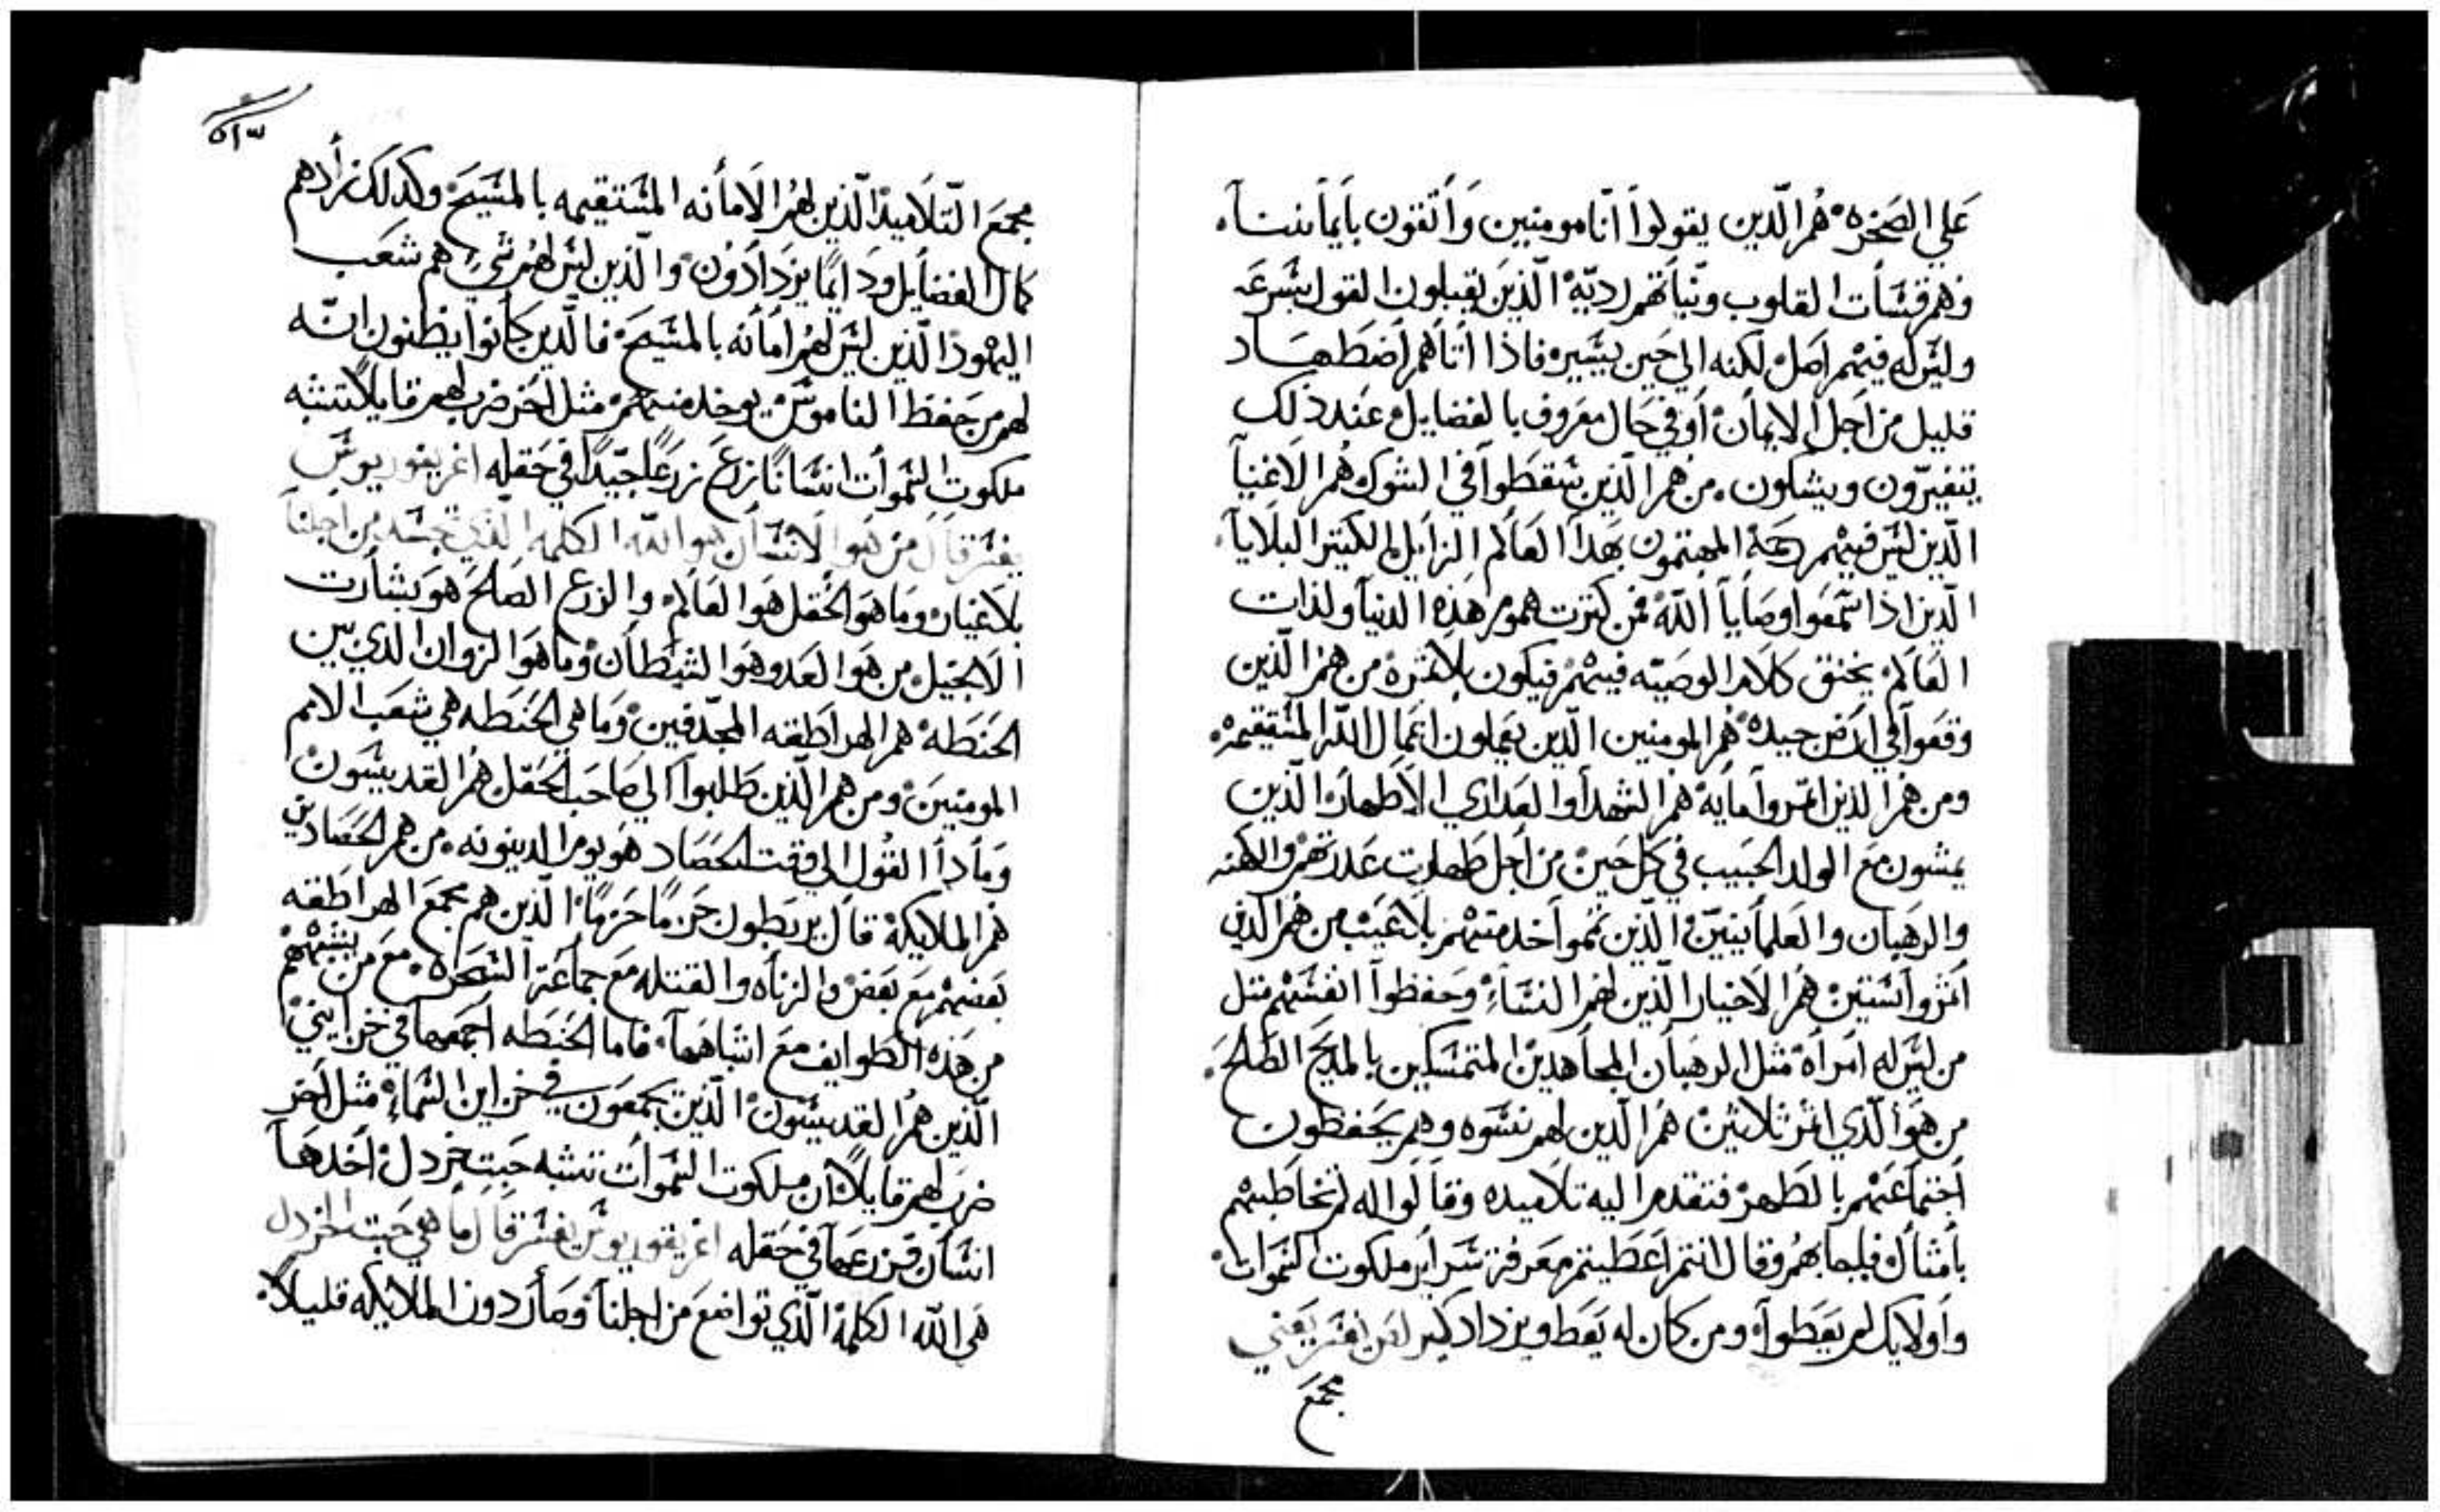 علي الصخره هم الّذين يقولوا انّا مومنين واتقون بايماننا
وهم قسات القلوب ونيّاتهم رديّه الّذين يقبلون القول بسرعه
وليس له فيهم اصل لكنه الي حين يسيره فاذا اتاهم اضطهاد
قليل من اجل الايمان او في حال معروف بالفضايل عند ذلك
يتغيرّون ويشكون من هم الذين سقطوا في الشوك هم الاغنيا
الّذين ليس فيهم رحمة المهتمون بهدا العالم الزايل الكتير البلايا
الّدين اذا سمعوا وصايا اللّه فمن كترت هموم هذه الدنيا ولذات
العالم يختنق كلام الوصيّه فيهم فيكون بلا ثمره من هم الّذين
وقعوا في ارض جيده هم المومنين الّدين يعملون اعمال اللّه المستقيمه
ومن هم الذين اثمروا مايه هم الشهدا والعداري الاطهار الّذين
يمشون مع الولد الحبيب في كل حين من اجل طهارت عدرتهم والكهنه
والرهبان والعلمانيينّ الّذين تمموا خدمتهم بلا عيب من هم الذين
اثمروا ستين هم الاخيار الّذين لهم النساء وحفظوا انفسهم متل
من ليس له امراه مثل الرهبان المجاهدين المتمسكين بالمديح الصالح
من هو الّذي اثمر ثلاثين هم الّدين لهم نسوه وهم يحفظون
اجتماعهم بالطهر فتقدم اليه تلاميده وقالوا له لم تخاطبهم
بامثال فاجابهم وقال انتم اعطيتم معرفة سراير ملكوت السموات
واولايك لم يعطوا ومن كان له يعط ويزداد كيرلص يفسر يعني
مجمع
٥١٣
مجمع التّلاميد الّذين لهم الامانه المستقيمه بالمسيح وكدلك نزادهم
كمال الفضايل ودايمًا يزدادون والّذين ليس لهم شيء هم شعب
اليهود الّذين ليس لهم امانه بالمسيح فالّدين كانوا يظنون انّه
لهم من حفظ الناموس يوخد منهم مثل اخر ضرب لهم قايلاً تشبه
ملكوت السموات انسانًا زرع زرعًا جيّدًا في حقله اغريغوريوس
يفسر قال من هو الانسان هو اللّه الكلمه الّذي تجسّد من اجلنا
بلا غيار وما هو الحقل هو العالم والزرع الصالح هو بشارت
الانجيل من هو العدو هو الشيطان وما هو الزوان الدي بين
الحنطه هم الهراطقه المجدّفين وما هي الحنطه هي شعب الامم
المومنين ومن هم الّذين طلبوا الي صاحب الحقل هم القديسون
ومادا القول الي وقت الحصاد هو يوم الدينونه من هم الحصادين
هم الملايكة قال يربطون حزمًا حزمًا الّذين هم مجمع الهراطقه
بعضهم مع بعض والزناه والقتله مع جماعة السحراه مع من يشبههم
من هذه الطوايف مع اشباهها فاما الحنطه اجمعها في خزايني
الّذين هم القديسون الّذين يجمعون في خزاين السماء مثل اخر
ضرب لهم قايلاً ان ملكوت السموات تشبه حبت خردل اخدها
انسان وزرعها في حقله اغريغوريوس يفسر قال ما هي حبت الخردل
هي اللّه الكلمة الّذي تواضع من اجلنا وصار دون الملايكه قليلاً